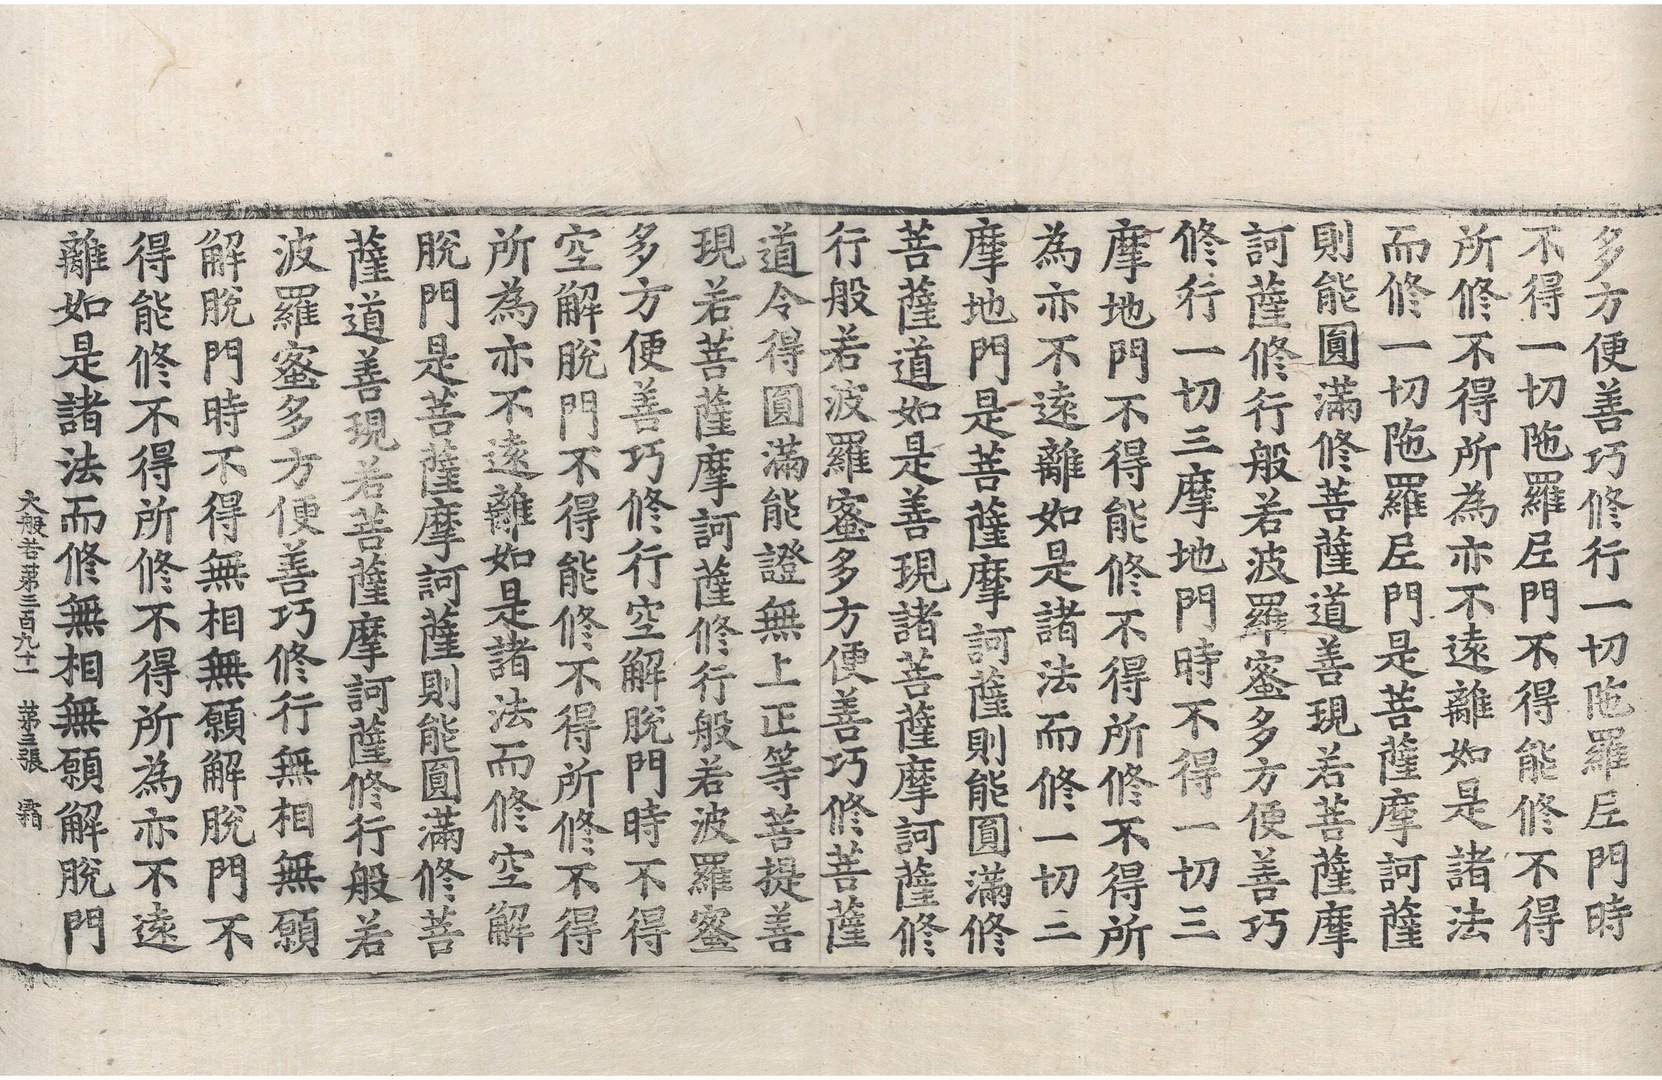 多方便善巧修行一切陁羅尼門時
不得一切陁羅尼門不得能修不得
所修不得所為亦不遠離如是諸法
而修一切陁羅尼門是菩薩摩訶薩
則能圓滿修菩薩道善現若菩薩摩
訶薩修行般若波羅蜜多方便善巧
修行一切三摩地門時不得一切三
摩地門不得能修不得所修不得所
為亦不遠離如是諸法而修一切三
摩地門是菩薩摩訶薩則能圓滿修
菩薩道如是善現諸菩薩摩訶薩修
行般若波羅蜜多方便善巧修菩薩
道令得圓滿能證無上正等菩提善
現若菩薩摩訶薩修行般若波羅蜜
多方便善巧修行空解脫門時不得
空解脫門不得能修不得所修不得
所為亦不遠離如是諸法而修空解
脫門是菩薩摩訶薩則能圓滿修菩
薩道善現若菩薩摩訶薩修行般若
波羅蜜多方便善巧修行無相無願
解脫門時不得無相無願解脫門不
得能修不得所修不得所為亦不遠
離如是諸法而修無相無願解脫門
大般若第三百九十一 第三張 霜